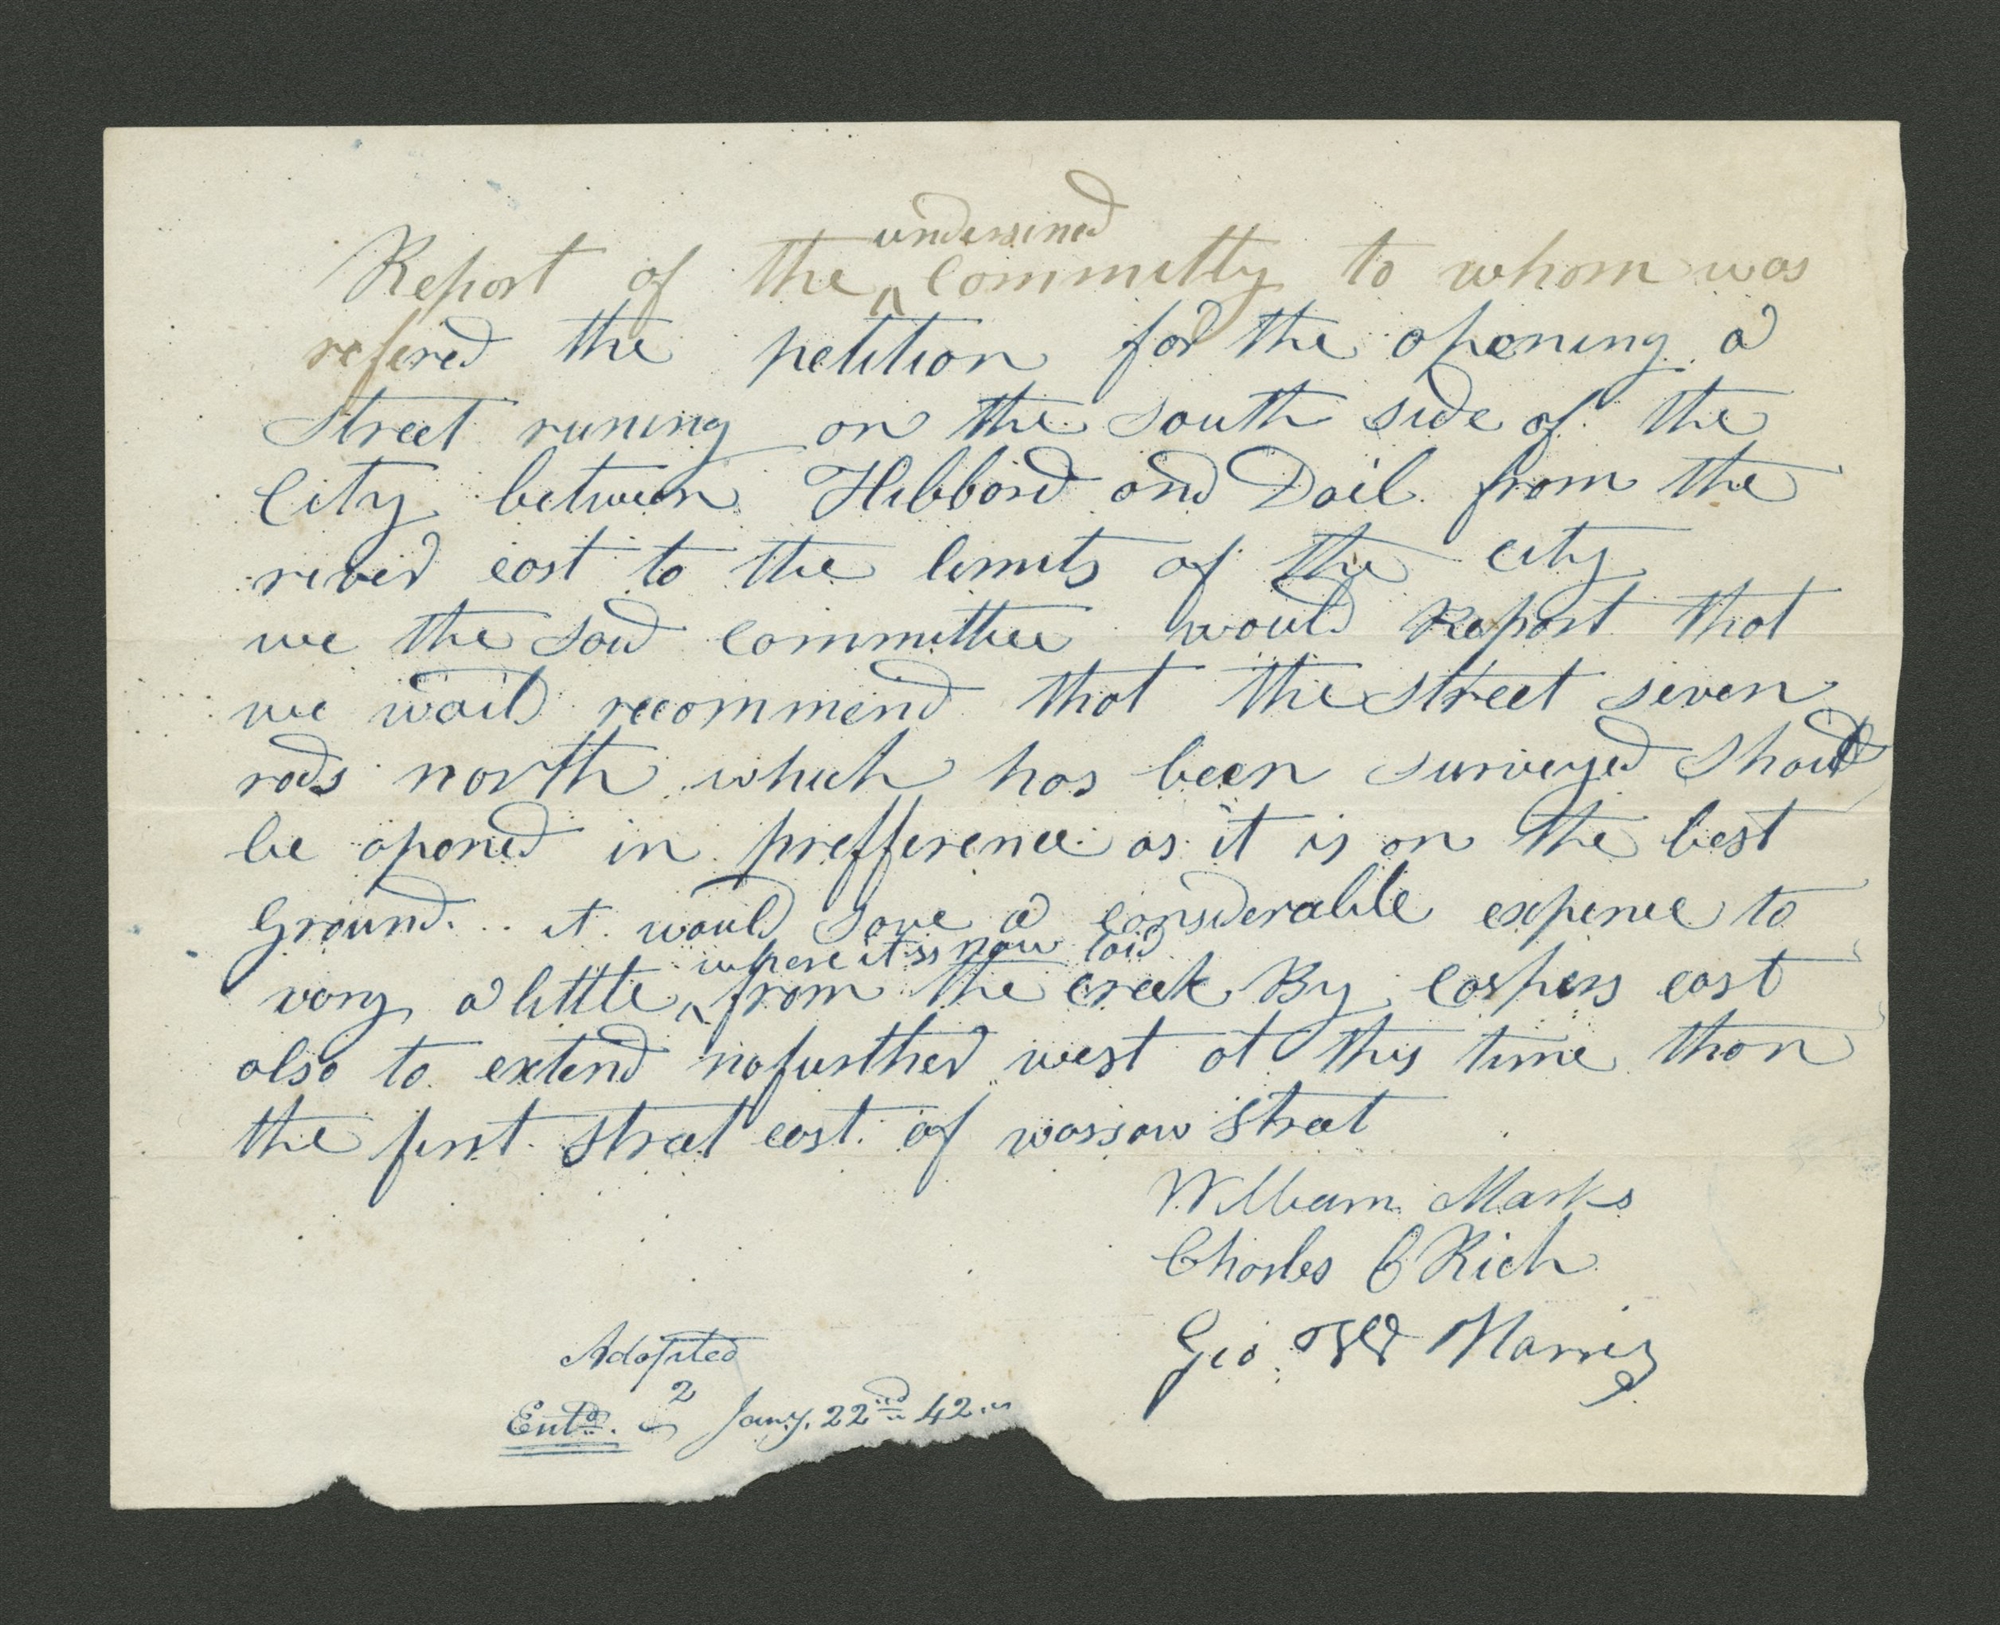 Report of the ^ undersined committy to whom was
refered the petition for the opening a
Street runing on the South side of the
City between Hibbard and Dail from the
river east to the limits of the City
we the Said Committee would Report that
we would recommend that the Street seven
rods north which has been surveyed Should
be opened in prefference as it is on the best
Ground. it would save a considerable expence to
vary a little ^ where it is now laid from the creek By Caspers east
also to extend no further west at this time than
the first Street east of warsaw Street
William Marks
Charles C Rich
Geo W Harris
Adopted
Entd. 2 Jany. 22nd 42.